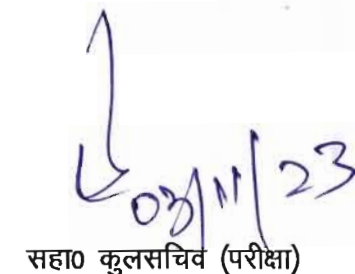 03/11/23
सहा0 कुलसचिव (परीक्षा)